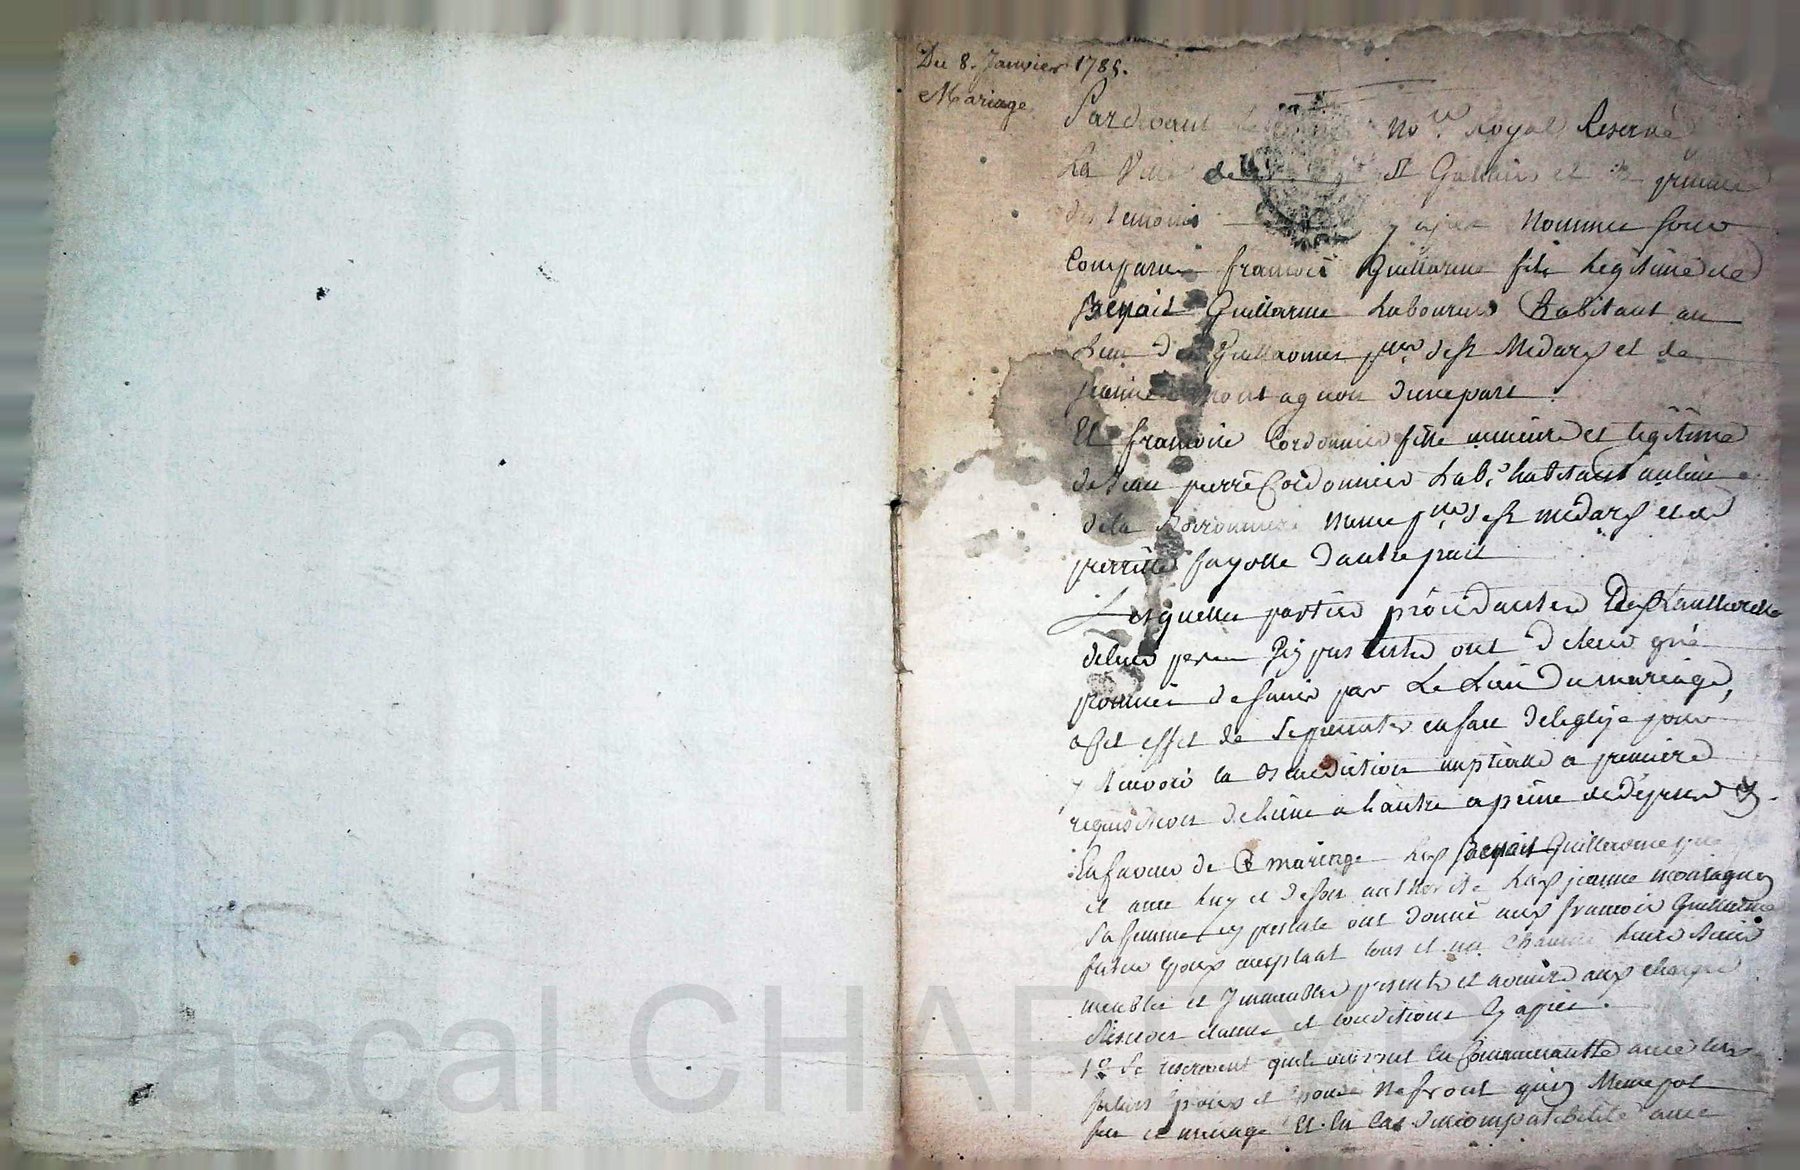 Du 8. Janvier 1785.
Mariage
Pardevant no.re Royal Reservé
La Ville de St Galmier et
des temoins cy apres Nommes sont
Comparu françois Guillaume fils Legitime de
Benoit Guillaume Laboureur habitant au
Lieu des Guillaumes p.sse de st Medard et de
jeanne Montagnon d'une part.
Et françoise Cordonnier fille mineure et legitime
de Jean pierre Cordonnier Lab.r habitant au lieu
de la meme p.sse de st medard et de
pierrette fayolle d'autre part
Lesquelles parties procedantes de l'authorité
de leurs peres icy presents ont de leur gré
promis de s'unir par Le Lien du mariage,
a cet effet de se presenter en face de leglize pour
y recevoir la Benediction nuptialle a premiere
requisition de lune a lautre a peine de depens
En faveur de Ce mariage Led Benoit Guillaume
et avec luy et de son authorité Lad jeanne montagnon
sa femme icy presente ont donné aud françois Guillaume
futur epoux acceptant tous et un chacun leurs biens
meubles et immeubles presents et avenir aux charges
Reserves clauses et conditions cy apres.
1° Se reservent quils vivront en Communauté avec les
futurs epoux et epouse Ne front quun Meme pot
feu et menage Et En Cas d'incompatibilité avec
Pascal CHA